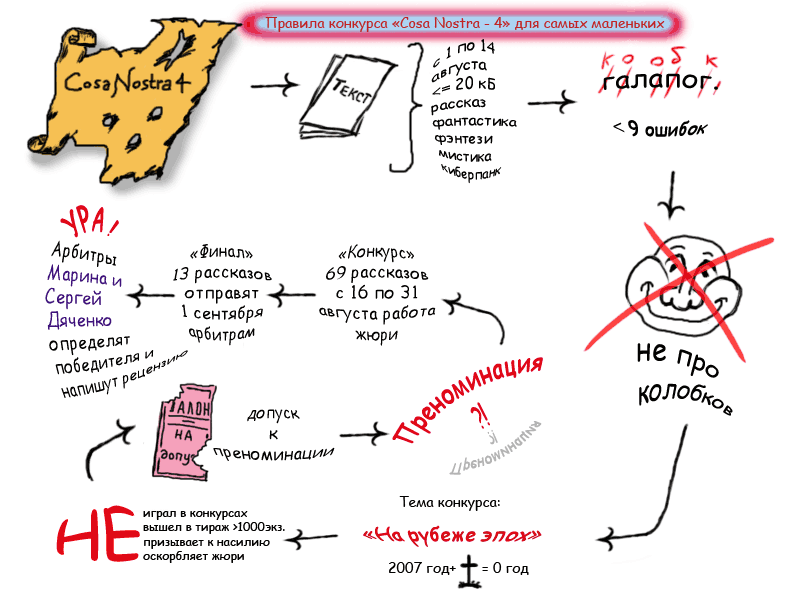 Правила конкурса «Cosa Nostra - 4» для самых маленьких
Cosa Nostra 4
ТЕКСТ
с 1 по 14
августа
<= 20 кБ
рассказ
фантастика
фэнтези
мистика
киберпанк
к о о б к
галапог.
< 9 ошибок
не про
колобков
Тема конкурса:
«На рубеже эпох»
2007 год+ = 0 год
НЕ
играл в конкурсах
вышел в тираж >1000экз.
призывает к насилию
оскорбляет жюри
ТАЛОН
НА
допу
допуск
к
преноминации
Преноминация
?!
Преноминация
«Конкурс»
69 рассказов
с 16 по 31
августа работа
жюри
«Финал»
13 рассказов
отправят
1 сентября
арбитрам
УРА!
Арбитры
Марина и
Сергей
Дяченко
определят
победителя и
напишут рецензию